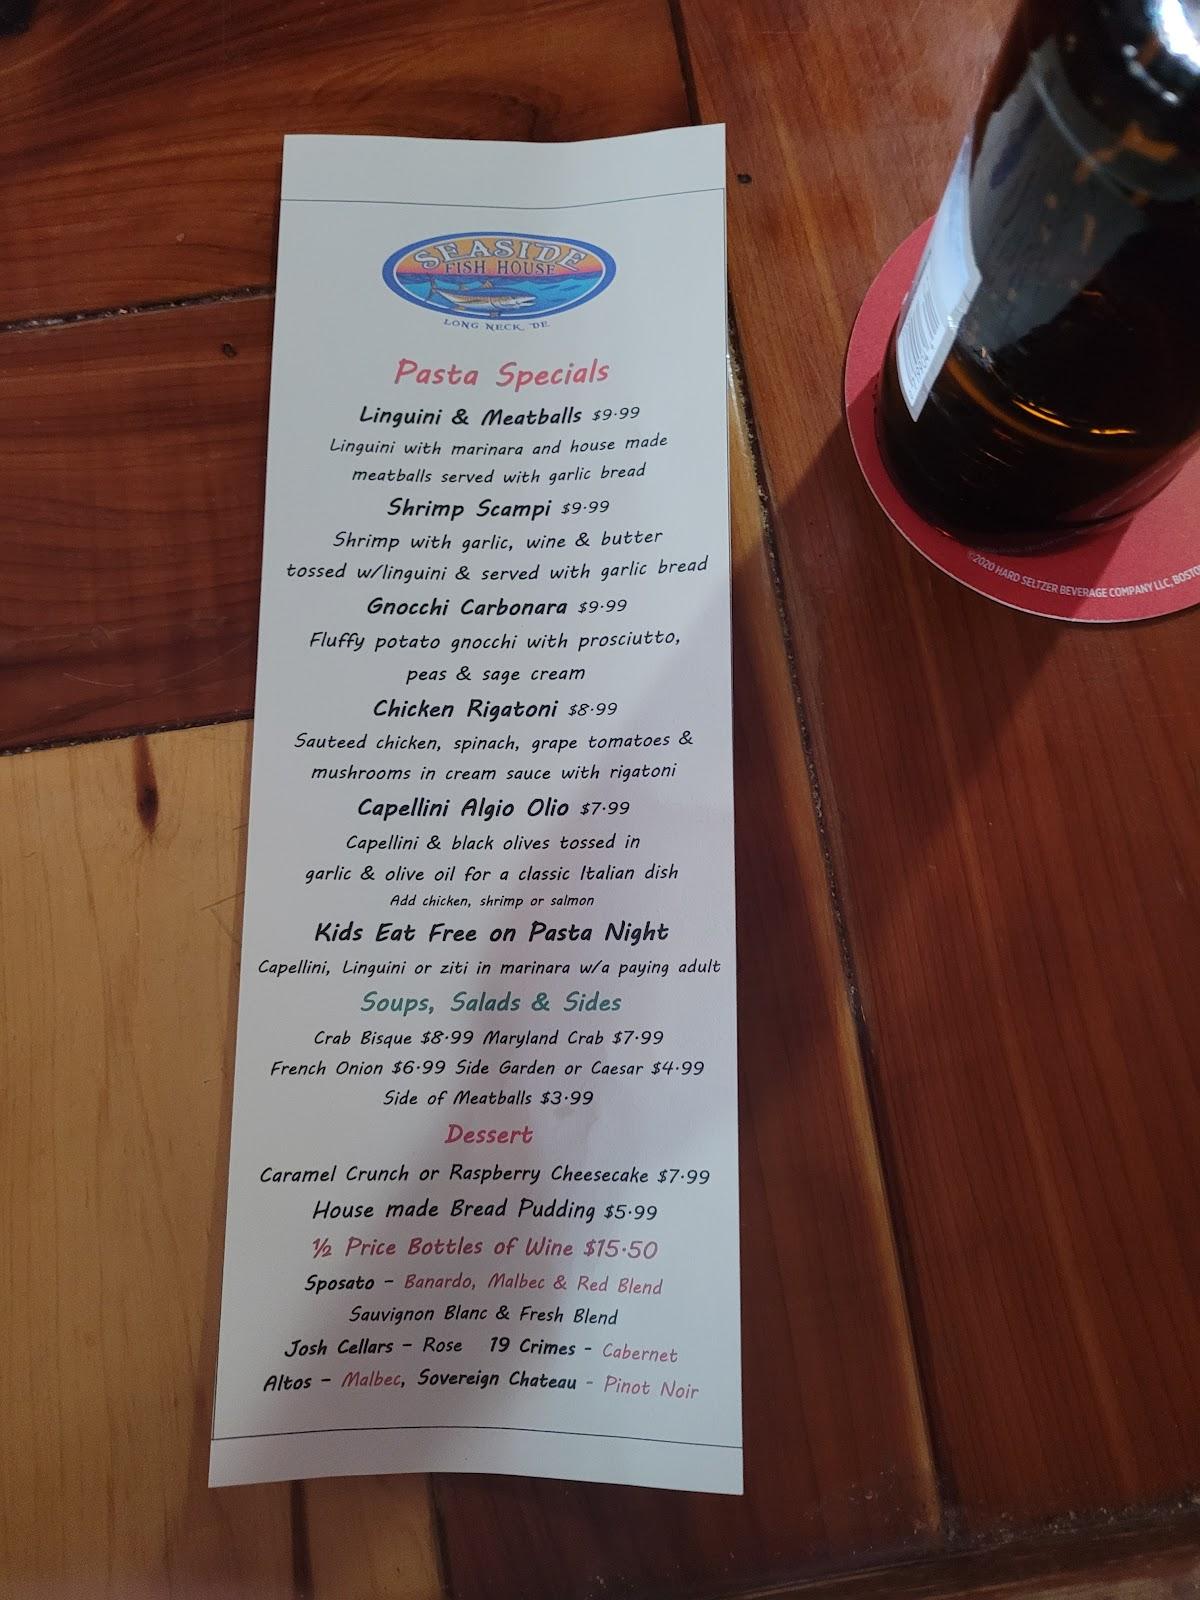 SEASIDE
FISH HOUSE
LONG NECK, DE
Pasta Specials
Linguini & Meatballs $9.99
Linguini with marinara and house made
meatballs served with garlic bread
Shrimp Scampi $9.99
Shrimp with garlic, wine & butter
tossed w/linguini & served with garlic bread
Gnocchi Carbonara $9.99
Fluffy potato gnocchi with prosciutto,
peas & sage cream
Chicken Rigatoni $8.99
Sauteed chicken, spinach, grape tomatoes &
mushrooms in cream sauce with rigatoni
Capellini Algio Olio $7.99
Capellini & black olives tossed in
garlic & olive oil for a classic Italian dish
Add chicken, shrimp or salmon
Kids Eat Free on Pasta Night
Capellini, Linguini or ziti in marinara w/a paying adult
Soups, Salads & Sides
Crab Bisque $8.99 Maryland Crab $7.99
French Onion $6.99 Side Garden or Caesar $4.99
Side of Meatballs $3.99
Dessert
Caramel Crunch or Raspberry Cheesecake $7.99
House made Bread Pudding $5.99
½ Price Bottles of Wine $15.50
Sposato - Banardo, Malbec & Red Blend
Sauvignon Blanc & Fresh Blend
Josh Cellars - Rose 19 Crimes - Cabernet
Altos - Malbec, Sovereign Chateau - Pinot Noir
©2020 HARD SELTZER BEVERAGE COMPANY LLC, BOSTON